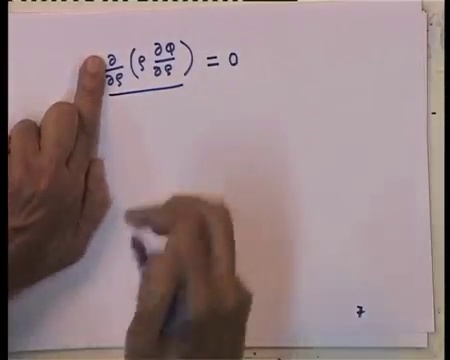 ∂/∂ρ (ρ ∂Φ/∂ρ) = 0
7